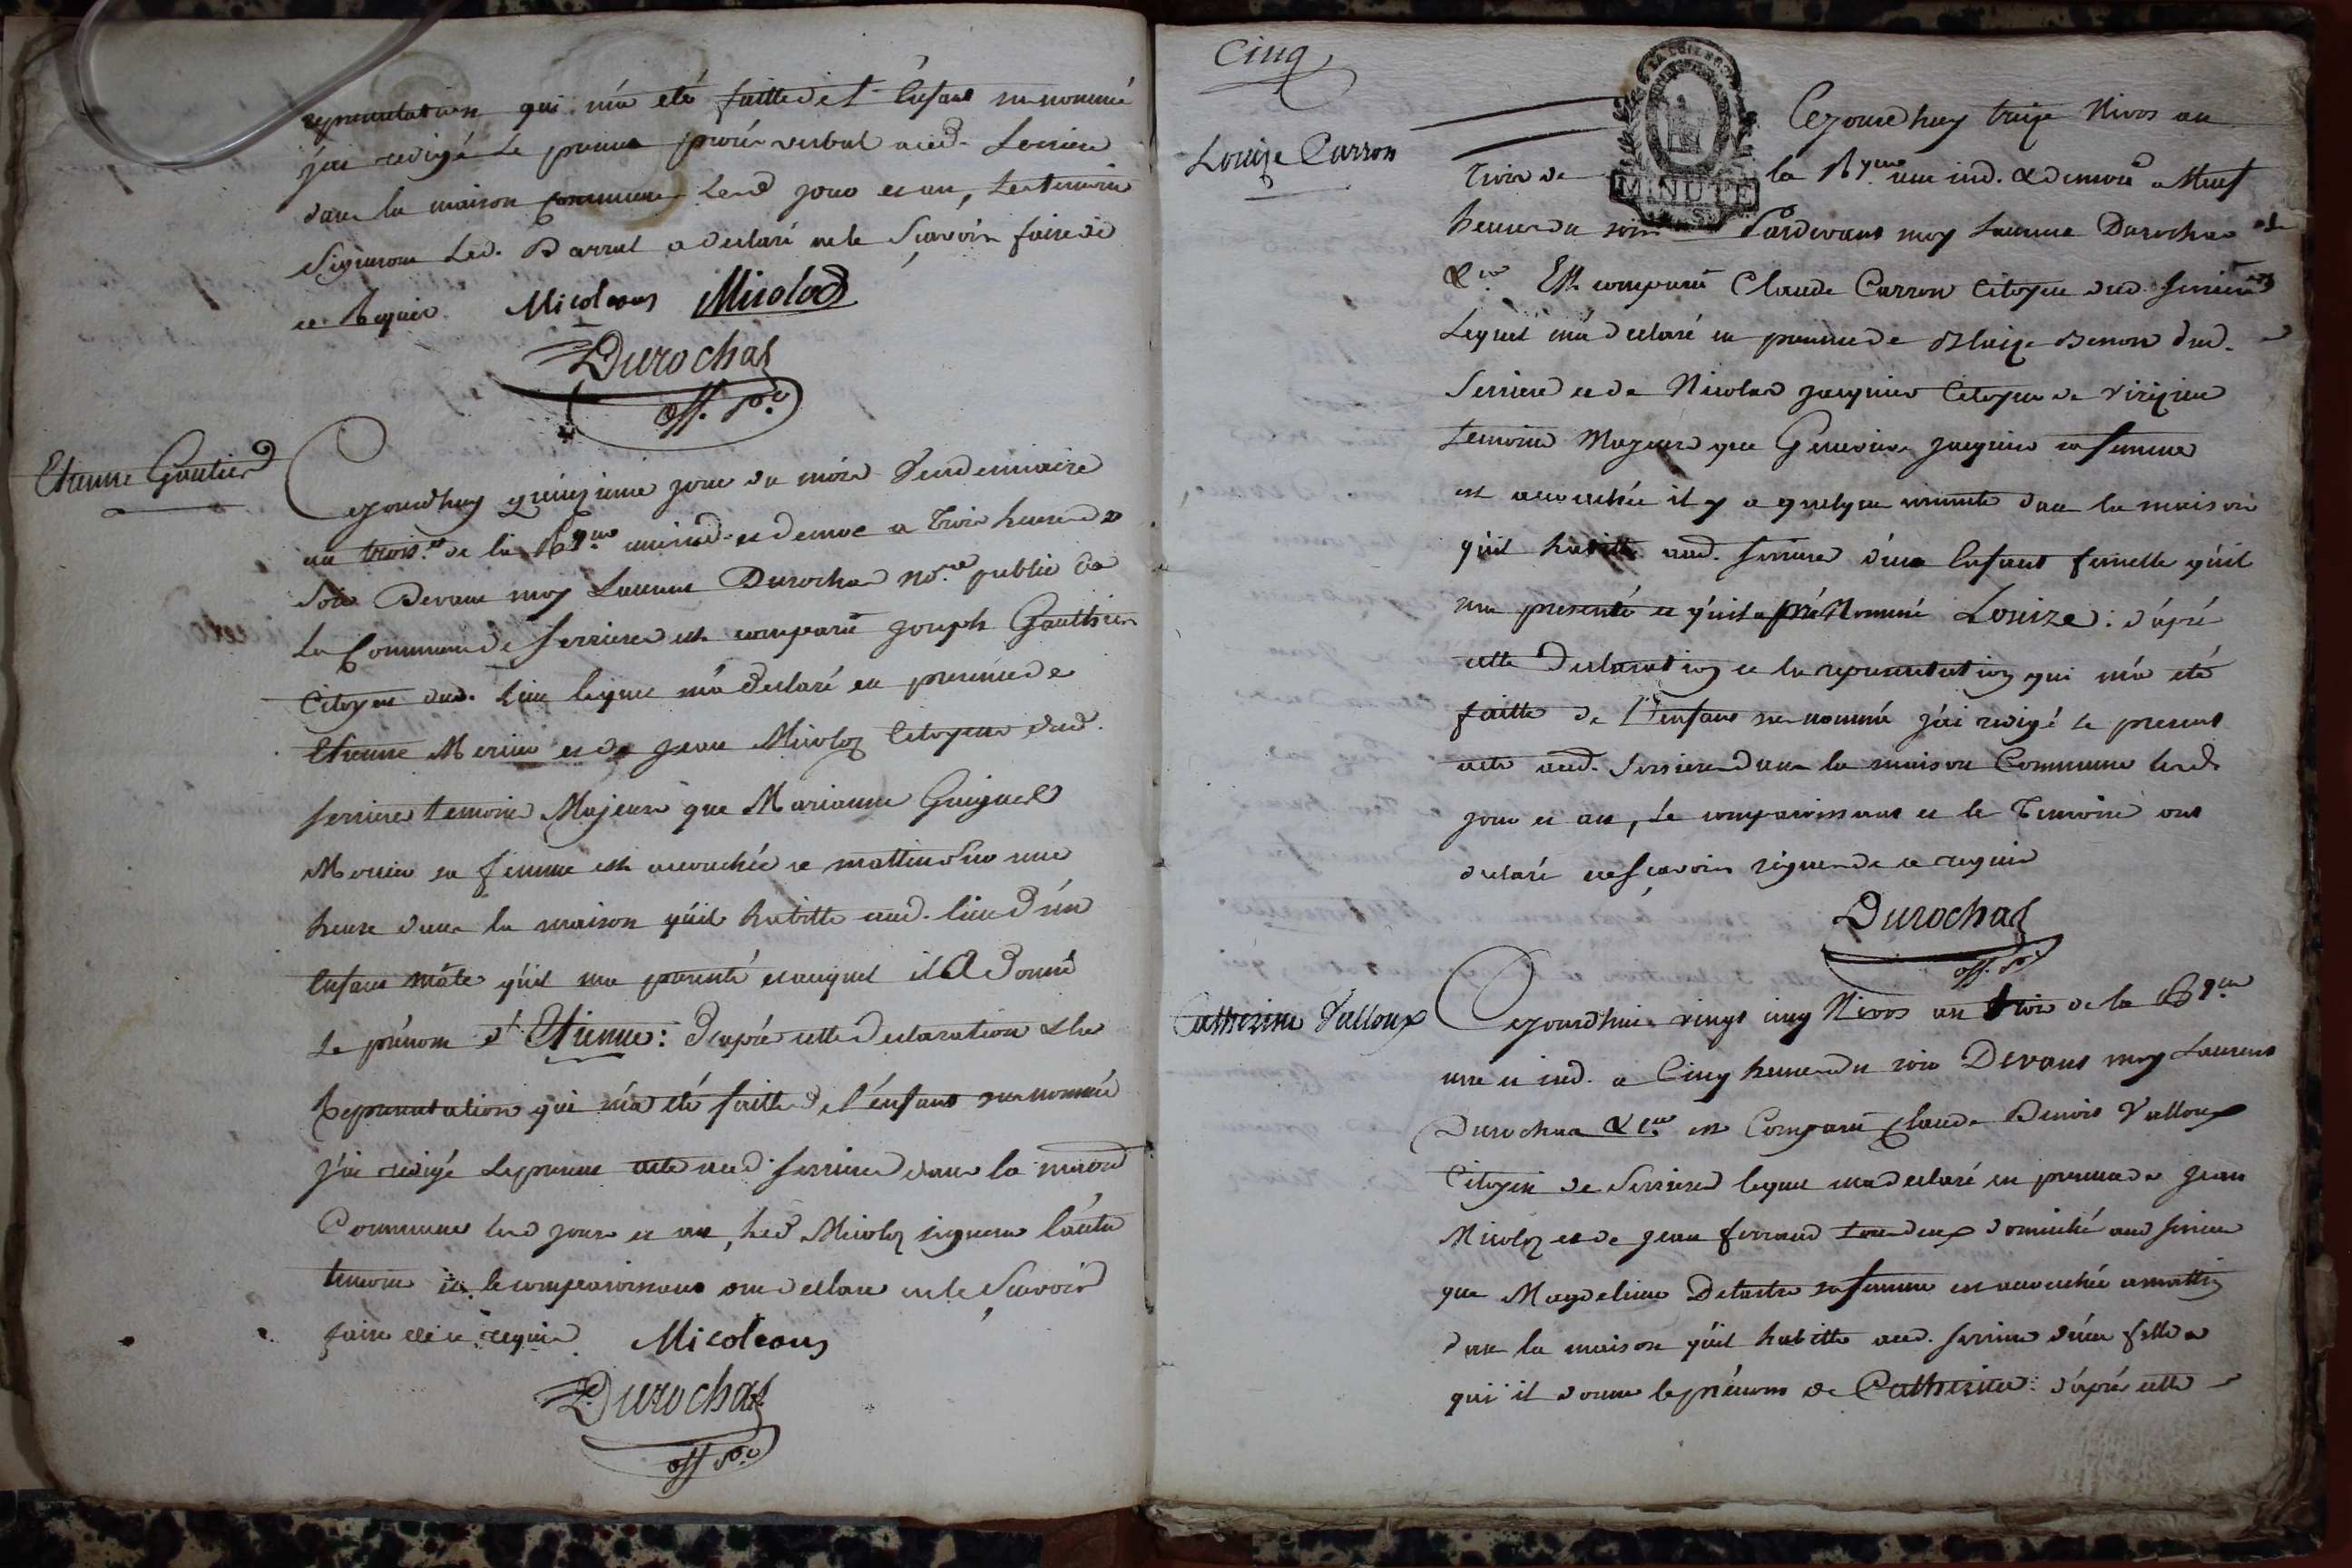 representation qui m'a eté faitte de l'Enfant susnommé
j'ai redigé Le present procés verbal aud. Serriere
dans la maison commune Lesd jour et an, Les temoins
Signeront Led. Barral a declaré ne le Sçavoir faire de
ce Requis. Micoleons Micolod
Durochat
off. po.
Etienne Gautier
Cejourdhuy quinzieme jour du mois Vendemiaire
an trois.e de la R.que une ind. et democ a Trois heures du
Soir Devant moy Laurent Durochat No.re public de
La Commune de Serriere est comparu joseph Gauthier
Citoyen dud. Lieu lequel m'a declaré en presence de
Etienne Mercier et de jean Micoloz Citoyens dud.
serriere temoins Majeurs que Marianne Guignet
Mercier sa femme est accouchée ce mattin Sur une
heure dans la maison qu'il habitte aud. lieu d'un
Enfant mâle qu'il ma presenté et auquel il A Donné
Le prénom d'Etienne: D'après cette Declaration & la
Representation qui m'a eté faitte de l'énfant susnommé
J'ai redigé Le present acte aud. Serriere dans la maison
Commune lesd jour et an, Led Micoloz signera l'autre
temoin et le comparoissant ont declaré ne le Sçavoir
faire de ce requis. Micoleons
Durochat
off po.
Cinq
Louize Carron
Cejourdhuy treize Nivos an
Trois de la R.que une ind. & democ a Neuf
MINUTE
heures du soir Pardevant moy Laurent Durochat
&ra Est comparu Claude Carron Citoyen dud. serriere
Lequel m'a declaré en presence de Blaize Benon dud.
Serriere et de Nicolas jacquier Citoyen de virizieu
temoins Majeurs que Genevieve jacquier sa femme
est accouchée il y a quelque minute dans la maison
qu'il habitte aud. serriere d'une Enfant femelle qu'il
ma presenté et qu'il a préNommé Louize: d'après
cette Declaration et la representation qui m'a eté
faitte de l'enfant susnommé j'ai redigé le present
acte aud. Serriere dans la maison Commune lesd.
jour et an, Le comparoissant et le Temoins ont
declaré ne sçavoir signer de ce requis
Durochat
off. po.
Catherine Valloux
Cejourdhui vingt cinq Nivos an trois de la R.que
une et ind. a Cinq heures du soir Devant moy Laurent
Durochat &ra est Comparu Claude Benoit Valloux
Citoyen de Serriere lequel ma declaré en presence de jean
Micoloz et de jean ferrand tous deux domicilié aud serriere
que Magdeleine Detartre sa femme est accouchée ce mattin
dans la maison qu'il habitte aud. serriere d'une fille a
qui il donne le prénom de Catherine: d'après cette